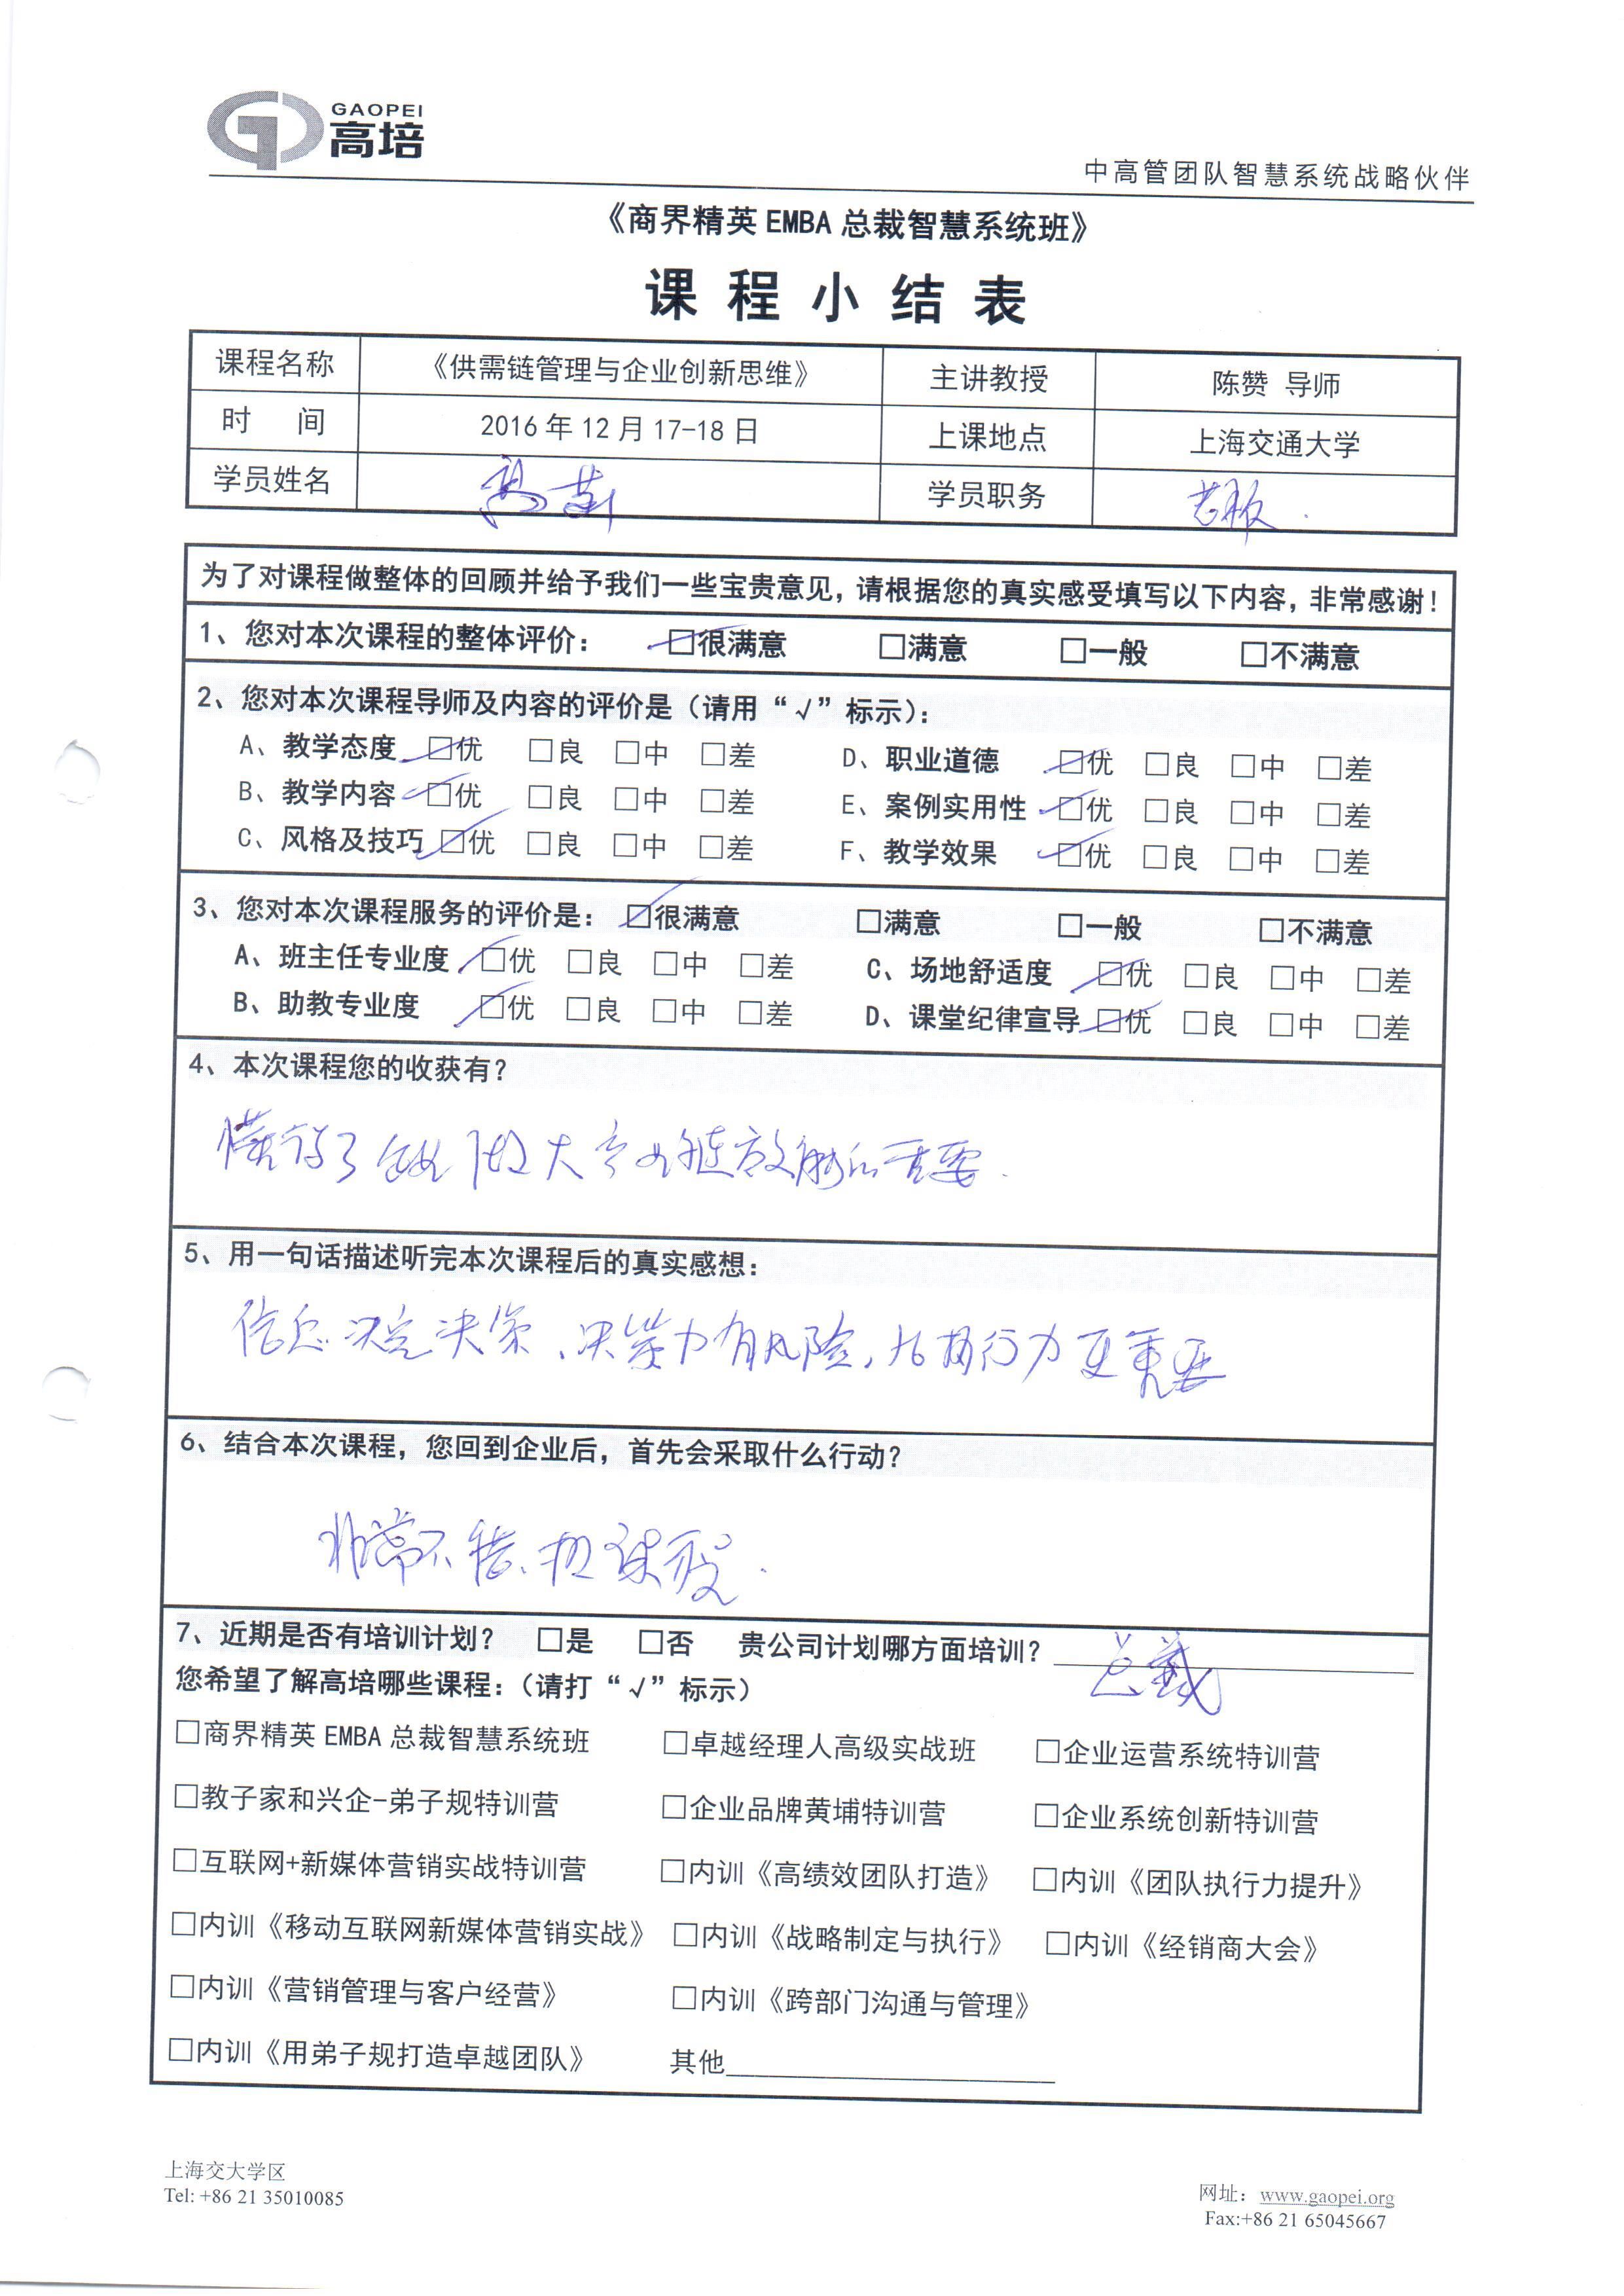 GAOPEI
高培
中高管团队智慧系统战略伙伴
《商界精英 EMBA 总裁智慧系统班》
课 程 小 结 表
课程名称 《供需链管理与企业创新思维》 主讲教授 陈赞 导师
时 间 2016 年 12 月 17-18 日 上课地点 上海交通大学
学员姓名 学员职务 老板
为了对课程做整体的回顾并给予我们一些宝贵意见，请根据您的真实感受填写以下内容，非常感谢！
1、您对本次课程的整体评价： □很满意 □满意 □一般 □不满意
2、您对本次课程导师及内容的评价是（请用“√”标示）：
A、教学态度 □优 □良 □中 □差 D、职业道德 □优 □良 □中 □差
B、教学内容 □优 □良 □中 □差 E、案例实用性 □优 □良 □中 □差
C、风格及技巧 □优 □良 □中 □差 F、教学效果 □优 □良 □中 □差
3、您对本次课程服务的评价是： □很满意 □满意 □一般 □不满意
A、班主任专业度 □优 □良 □中 □差 C、场地舒适度 □优 □良 □中 □差
B、助教专业度 □优 □良 □中 □差 D、课堂纪律宣导 □优 □良 □中 □差
4、本次课程您的收获有？
懂得了 大 链 重要.
5、用一句话描述听完本次课程后的真实感想：
信息决定决策、决策力有风险, 执行力更重要
6、结合本次课程，您回到企业后，首先会采取什么行动？
非常不错、
7、近期是否有培训计划？ □是 □否 贵公司计划哪方面培训？ 总裁
您希望了解高培哪些课程：（请打“√”标示）
□商界精英 EMBA 总裁智慧系统班 □卓越经理人高级实战班 □企业运营系统特训营
□教子家和兴企-弟子规特训营 □企业品牌黄埔特训营 □企业系统创新特训营
□互联网+新媒体营销实战特训营 □内训《高绩效团队打造》 □内训《团队执行力提升》
□内训《移动互联网新媒体营销实战》 □内训《战略制定与执行》 □内训《经销商大会》
□内训《营销管理与客户经营》 □内训《跨部门沟通与管理》
□内训《用弟子规打造卓越团队》 其他
上海交大学区
Tel: +86 21 35010085
网址： www.gaopei.org
Fax:+86 21 65045667